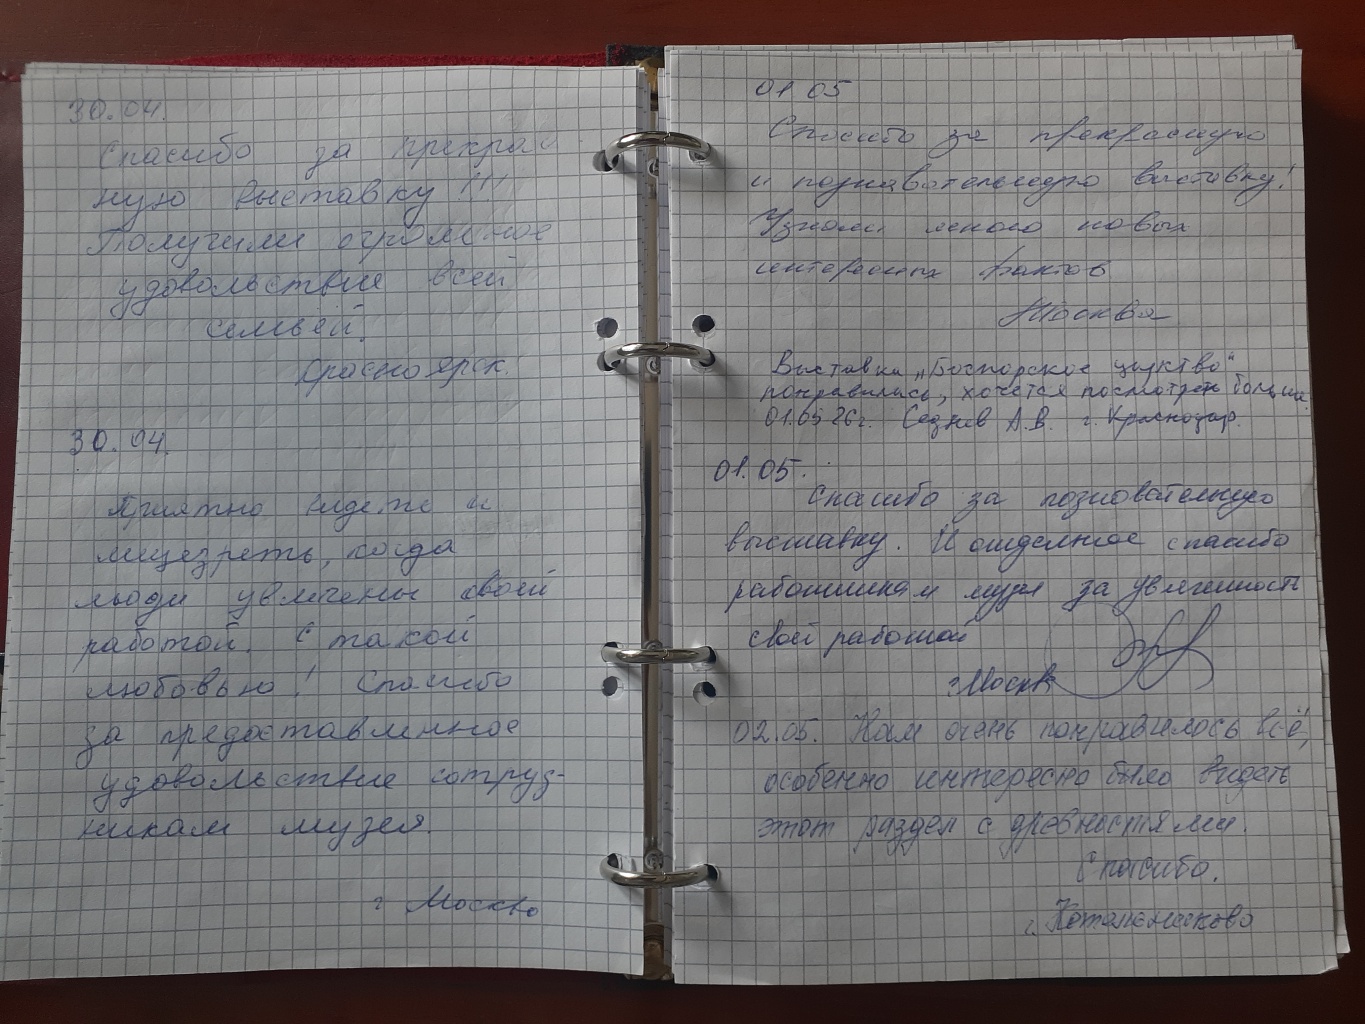 30.04.
Спасибо за прекрас
ную выставку!!!
Получили огромное
удовольствие всей
семьёй.
Красноярск.
30.04.
Приятно видеть и
лицезреть, когда
люди увлечены своей
работой. С такой
любовью! Спасибо
за предоставленное
удовольствие сотруд-
никам музея.
г Москва
01 05
Спасибо за прекрасную
и познавательную выставку!
Узнали много новых
интересных фактов
Москва
Выставка „Боспорское царство"
понравилась, хочется посмотреть больше
01.05 26г. А.В. г. Краснодар.
01.05.
Спасибо за познавательную
выставку. И отдельное спасибо
работникам музея за увлеченность
своей работой
г Москва
02.05. Нам очень понравилось всё,
особенно интересно было видеть
этот раздел с древностями.
Спасибо.
г.